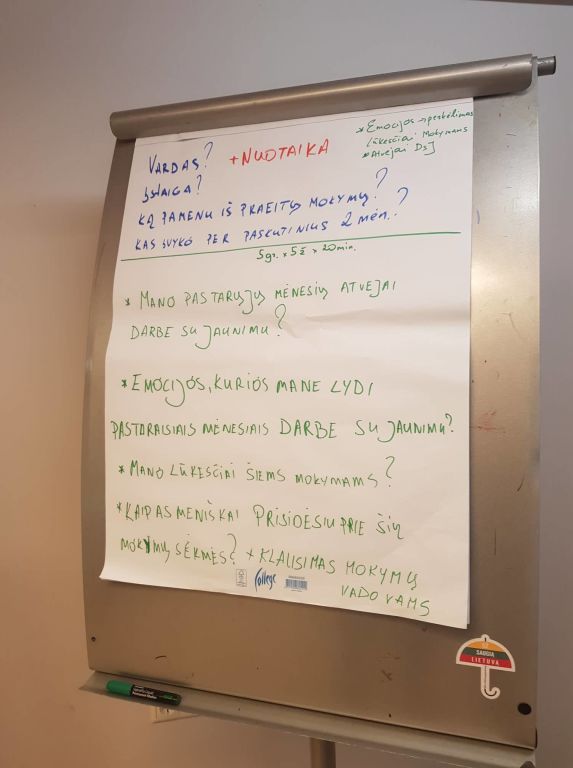 VARDAS? + NUOTAIKA
ĮSTAIGA?
KĄ PAMENU IŠ PRAEITŲ MOKYMŲ?
KAS ĮVYKO PER PASKUTINIUS 2 MĖN.?
* EMOCIJOS → peržiūrimas
LŪKESČIAI MOKYMAMS
* Atvejai DsJ
5gr. x 5ž > 20min.
* MANO PASTARŲJŲ MĖNESIŲ ATVEJAI
DARBE SU JAUNIMU?
* EMOCIJOS, KURIOS MANE LYDI
PASTARAISIAIS MĖNESIAIS DARBE SU JAUNIMU?
* MANO LŪKESČIAI ŠIEMS MOKYMAMS?
* KAIP ASMENIŠKAI PRISIDĖSIU PRIE ŠIŲ
MOKYMŲ SĖKMĖS? + KLAUSIMAS MOKYMŲ
VADOVAMS
College
UŽ
SAUGIĄ
LIETUVĄ